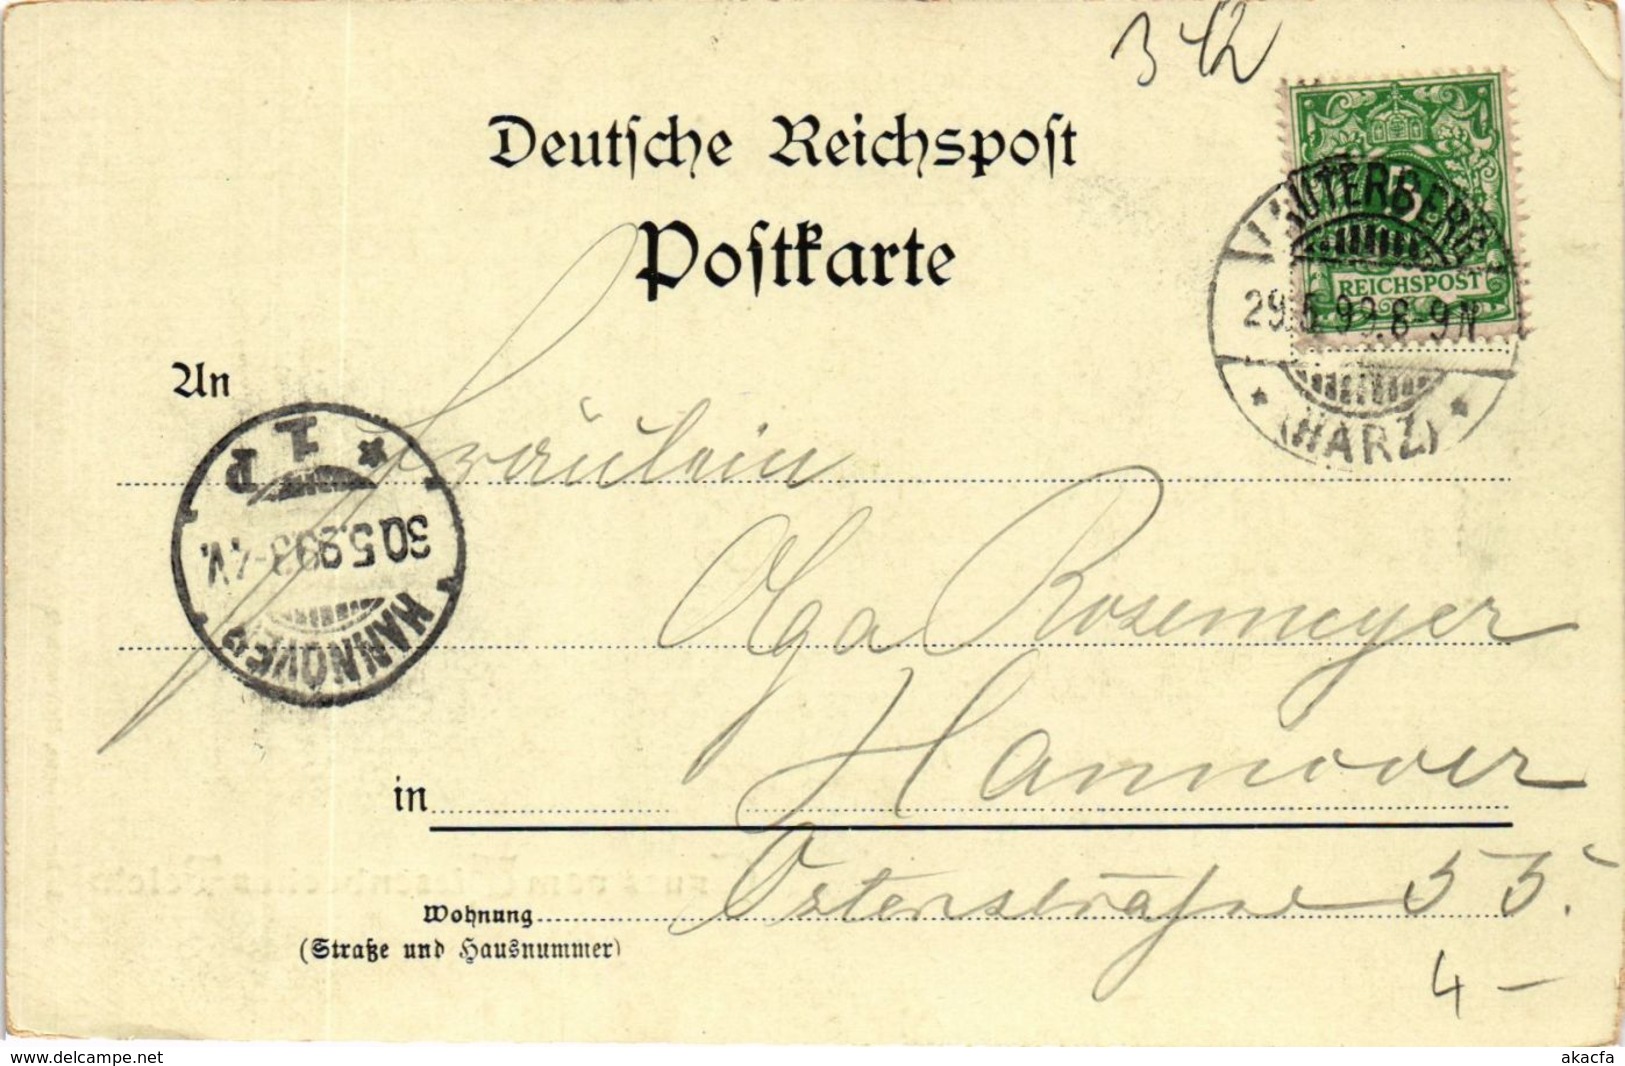 3 42
Deutsche Reichspost
Postkarte
5
REICHSPOST
LAUTERBERG
29.5.99.8-9N
* (HARZ) *
An
Fräulein
HANNOVER
30.5.99.3-4.V.
* 1 P
Olga Rosemeyer
in Hannover
Wohnung Osterstraße 55.
(Straße und Hausnummer)
4 –
www.delcampe.net
akacfa